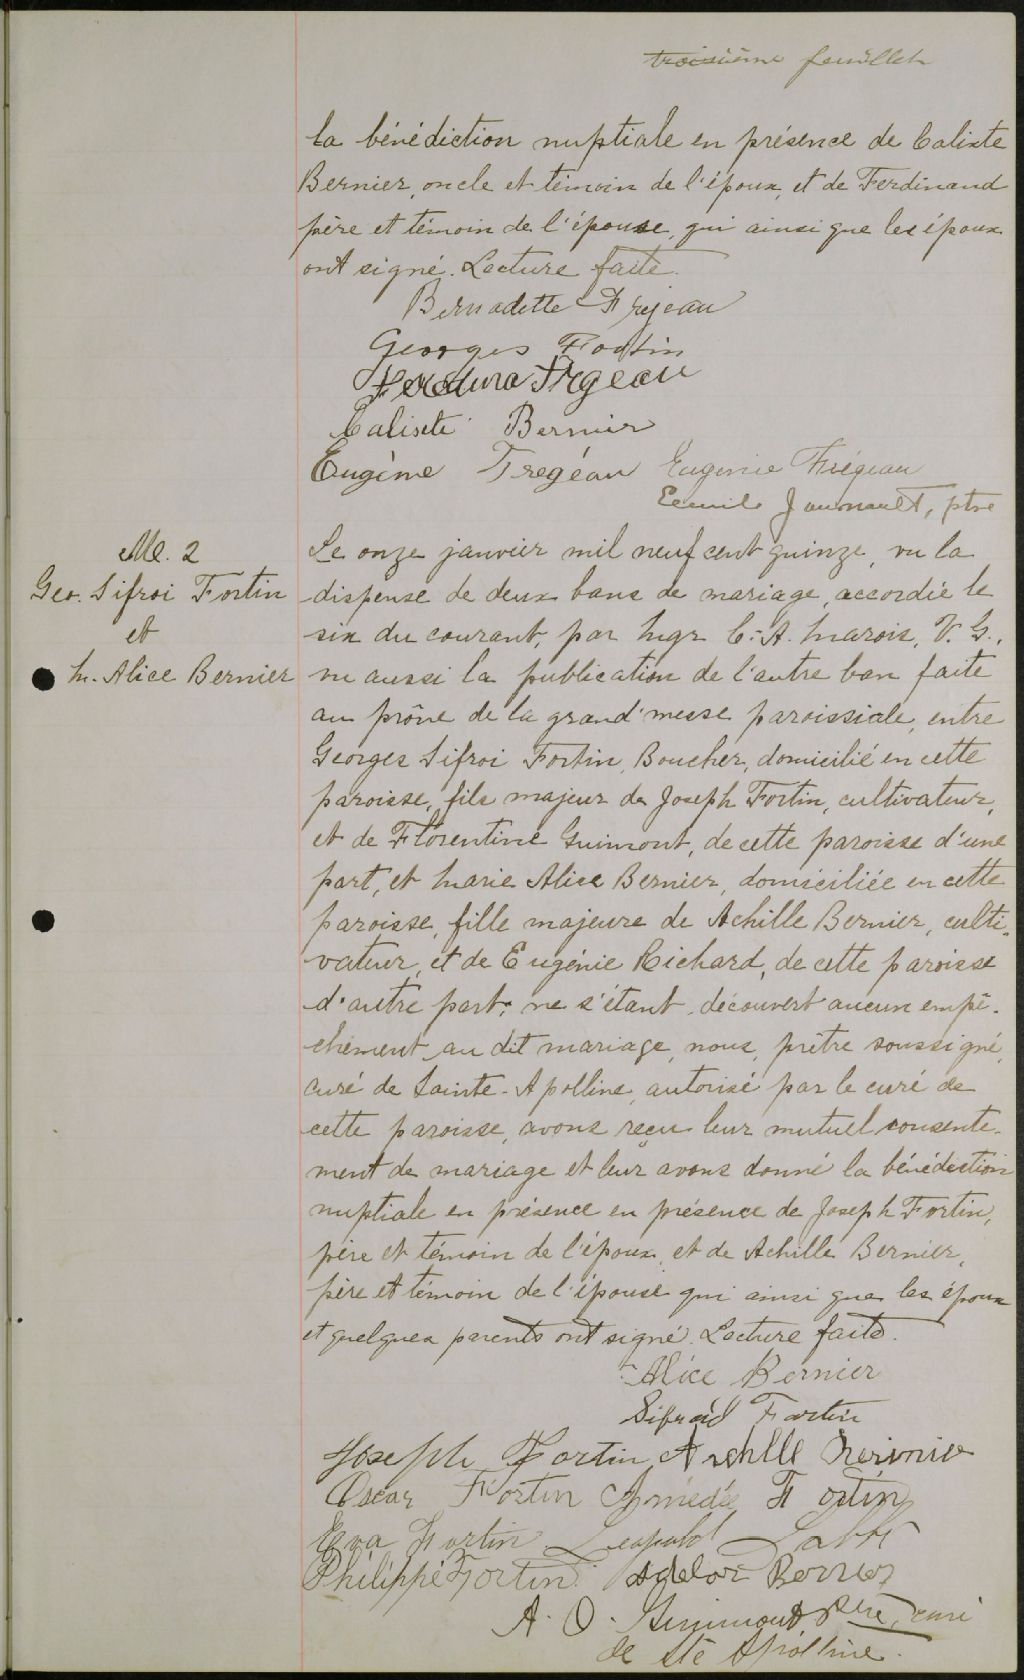 troisième feuillet
la bénédiction nuptiale en présence de Calixte
Bernier, oncle et témoin de l'époux, et de Ferdinand
père et témoin de l'épouse, qui ainsi que les époux
ont signé. Lecture faite.
Bernadette Frejeau
Georges Fortin
Frgeau
Calixte Bernier
Eugène Fregéau Eugenie Frégeau
Journault, ptre
M. 2
Geo. Sifroi Fortin
et
M. Alice Bernier
Le onze janvier mil neuf cent quinze, vu la
dispense de deux bans de mariage, accordée le
six du courant, par Mgr C.-A. Marois, V. G.,
vu aussi la publication de l'autre ban faite
au prône de la grand'messe paroissiale, entre
Georges Sifroi Fortin, Boucher, domicilié en cette
paroisse, fils majeur de Joseph Fortin, cultivateur,
et de Florentine Guimont, de cette paroisse d'une
part, et Marie Alice Bernier, domiciliée en cette
paroisse, fille majeure de Achille Bernier, culti-
vateur, et de Eugénie Richard, de cette paroisse
d'autre part; ne s'étant découvert aucun empê-
chement au dit mariage, nous, prêtre soussigné,
curé de Sainte-Apolline, autorisé par le curé de
cette paroisse, avons reçu leur mutuel consente-
ment de mariage et leur avons donné la bénédiction
nuptiale en présence en présence de Joseph Fortin,
père et témoin de l'époux, et de Achille Bernier,
père et témoin de l'épouse qui ainsi que les époux
et quelques parents ont signé. Lecture faite.
Alice Bernier
Sifroid Fortin
Joseph Fortin Achille
Oscar Fortin Amédée Fortin
Eva Fortin Leopold Labbé
Philippe Fortin Adelar Bernier
A. O. Guimont ptre, curé
de Ste Apolline.